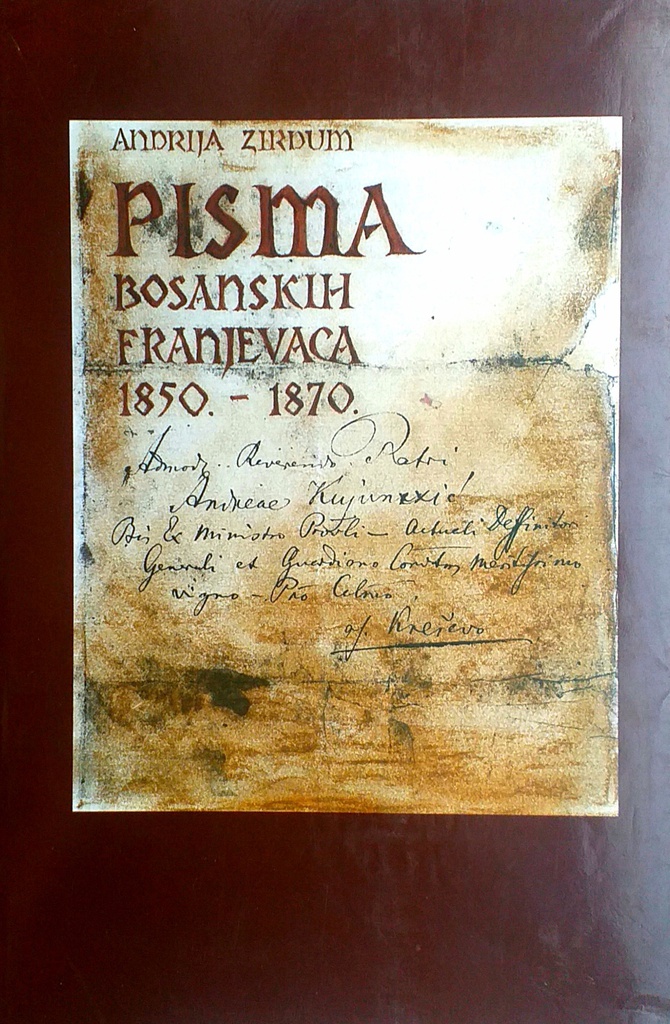 ANDRIJA ZIRDUM
PISMA
BOSANSKIH
FRANJEVACA
1850. - 1870.
Admodz. Reverendo Patri
Andreae Kujunxxić
Bis Ex Ministro Provli - Actuali Deffinitor
Generali et Guardiano Convtus
digno - Pro
Kreševo